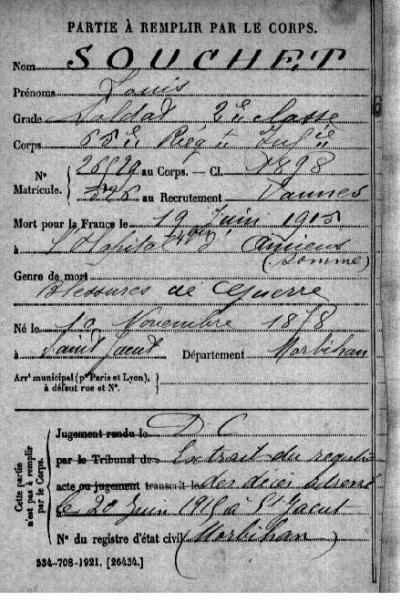 PARTIE À REMPLIR PAR LE CORPS.
Nom SOUCHET
Prénoms Louis
Grade Soldat 2e classe
Corps 65e Régt Infie
N° Matricule. 26529 au Corps. — Cl. 1898
au Recrutement Vannes
Mort pour la France le 19 Juin 1915
à l'Hopital d'Amiens
(Somme)
Genre de mort
Blessures de Guerre
Né le Novembre 1878
à Saint Jacut Département Morbihan
Arrt municipal (pr Paris et Lyon),
à défaut rue et N°.
Cette partie
n'est pas à remplir
par le Corps.
Jugement rendu le D C
par le Tribunal de Extrait du registre
acte ou jugement transcrit le des décès
le Juin 1915 à St Jacut
N° du registre d'état civil (Morbihan)
534-708-1921. [26434.]